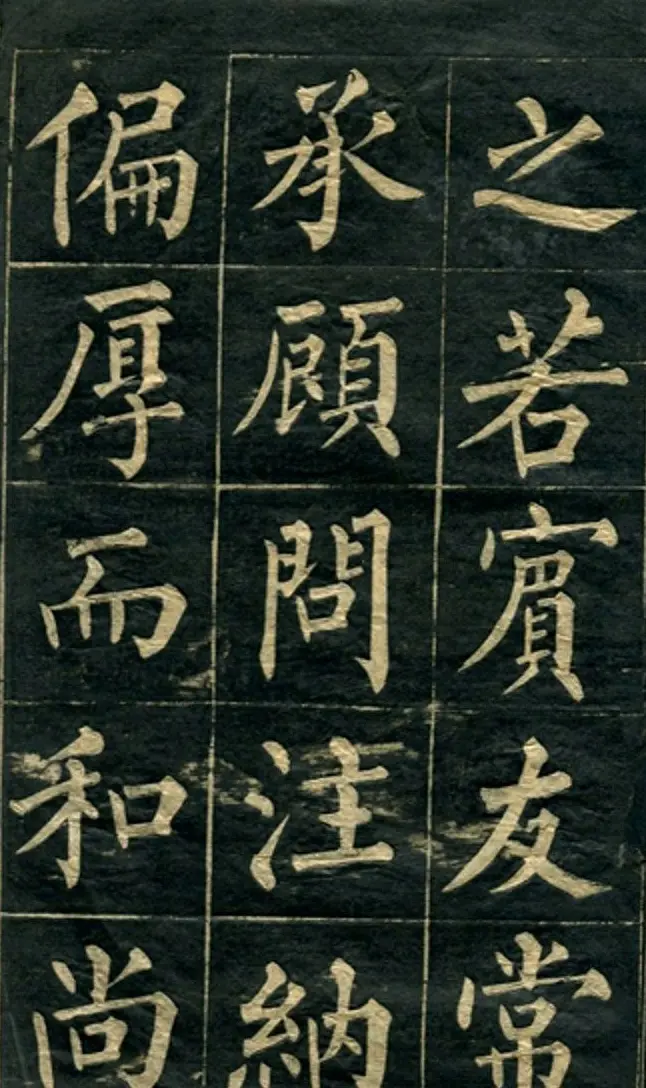 之若賓友常
承顧問注納
偏厚而和尚